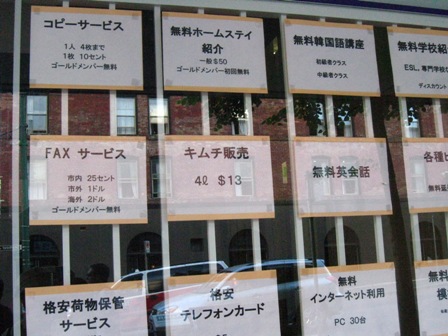 コピーサービス
1人 4枚まで
1枚 10セント
ゴールドメンバー無料
無料ホームステイ
紹介
一般$50
ゴールドメンバー初回無料
無料韓国語講座
初級者クラス
中級者クラス
無料学校紹
ESL, 専門学校
ディスカウント
FAX サービス
市内 25セント
市外 1ドル
海外 2ドル
ゴールドメンバー無料
キムチ販売
4ℓ $13
無料英会話
各種ビ
格安荷物保管
サービス
格安
テレフォンカード
無料
インターネット利用
PC 30台
無料